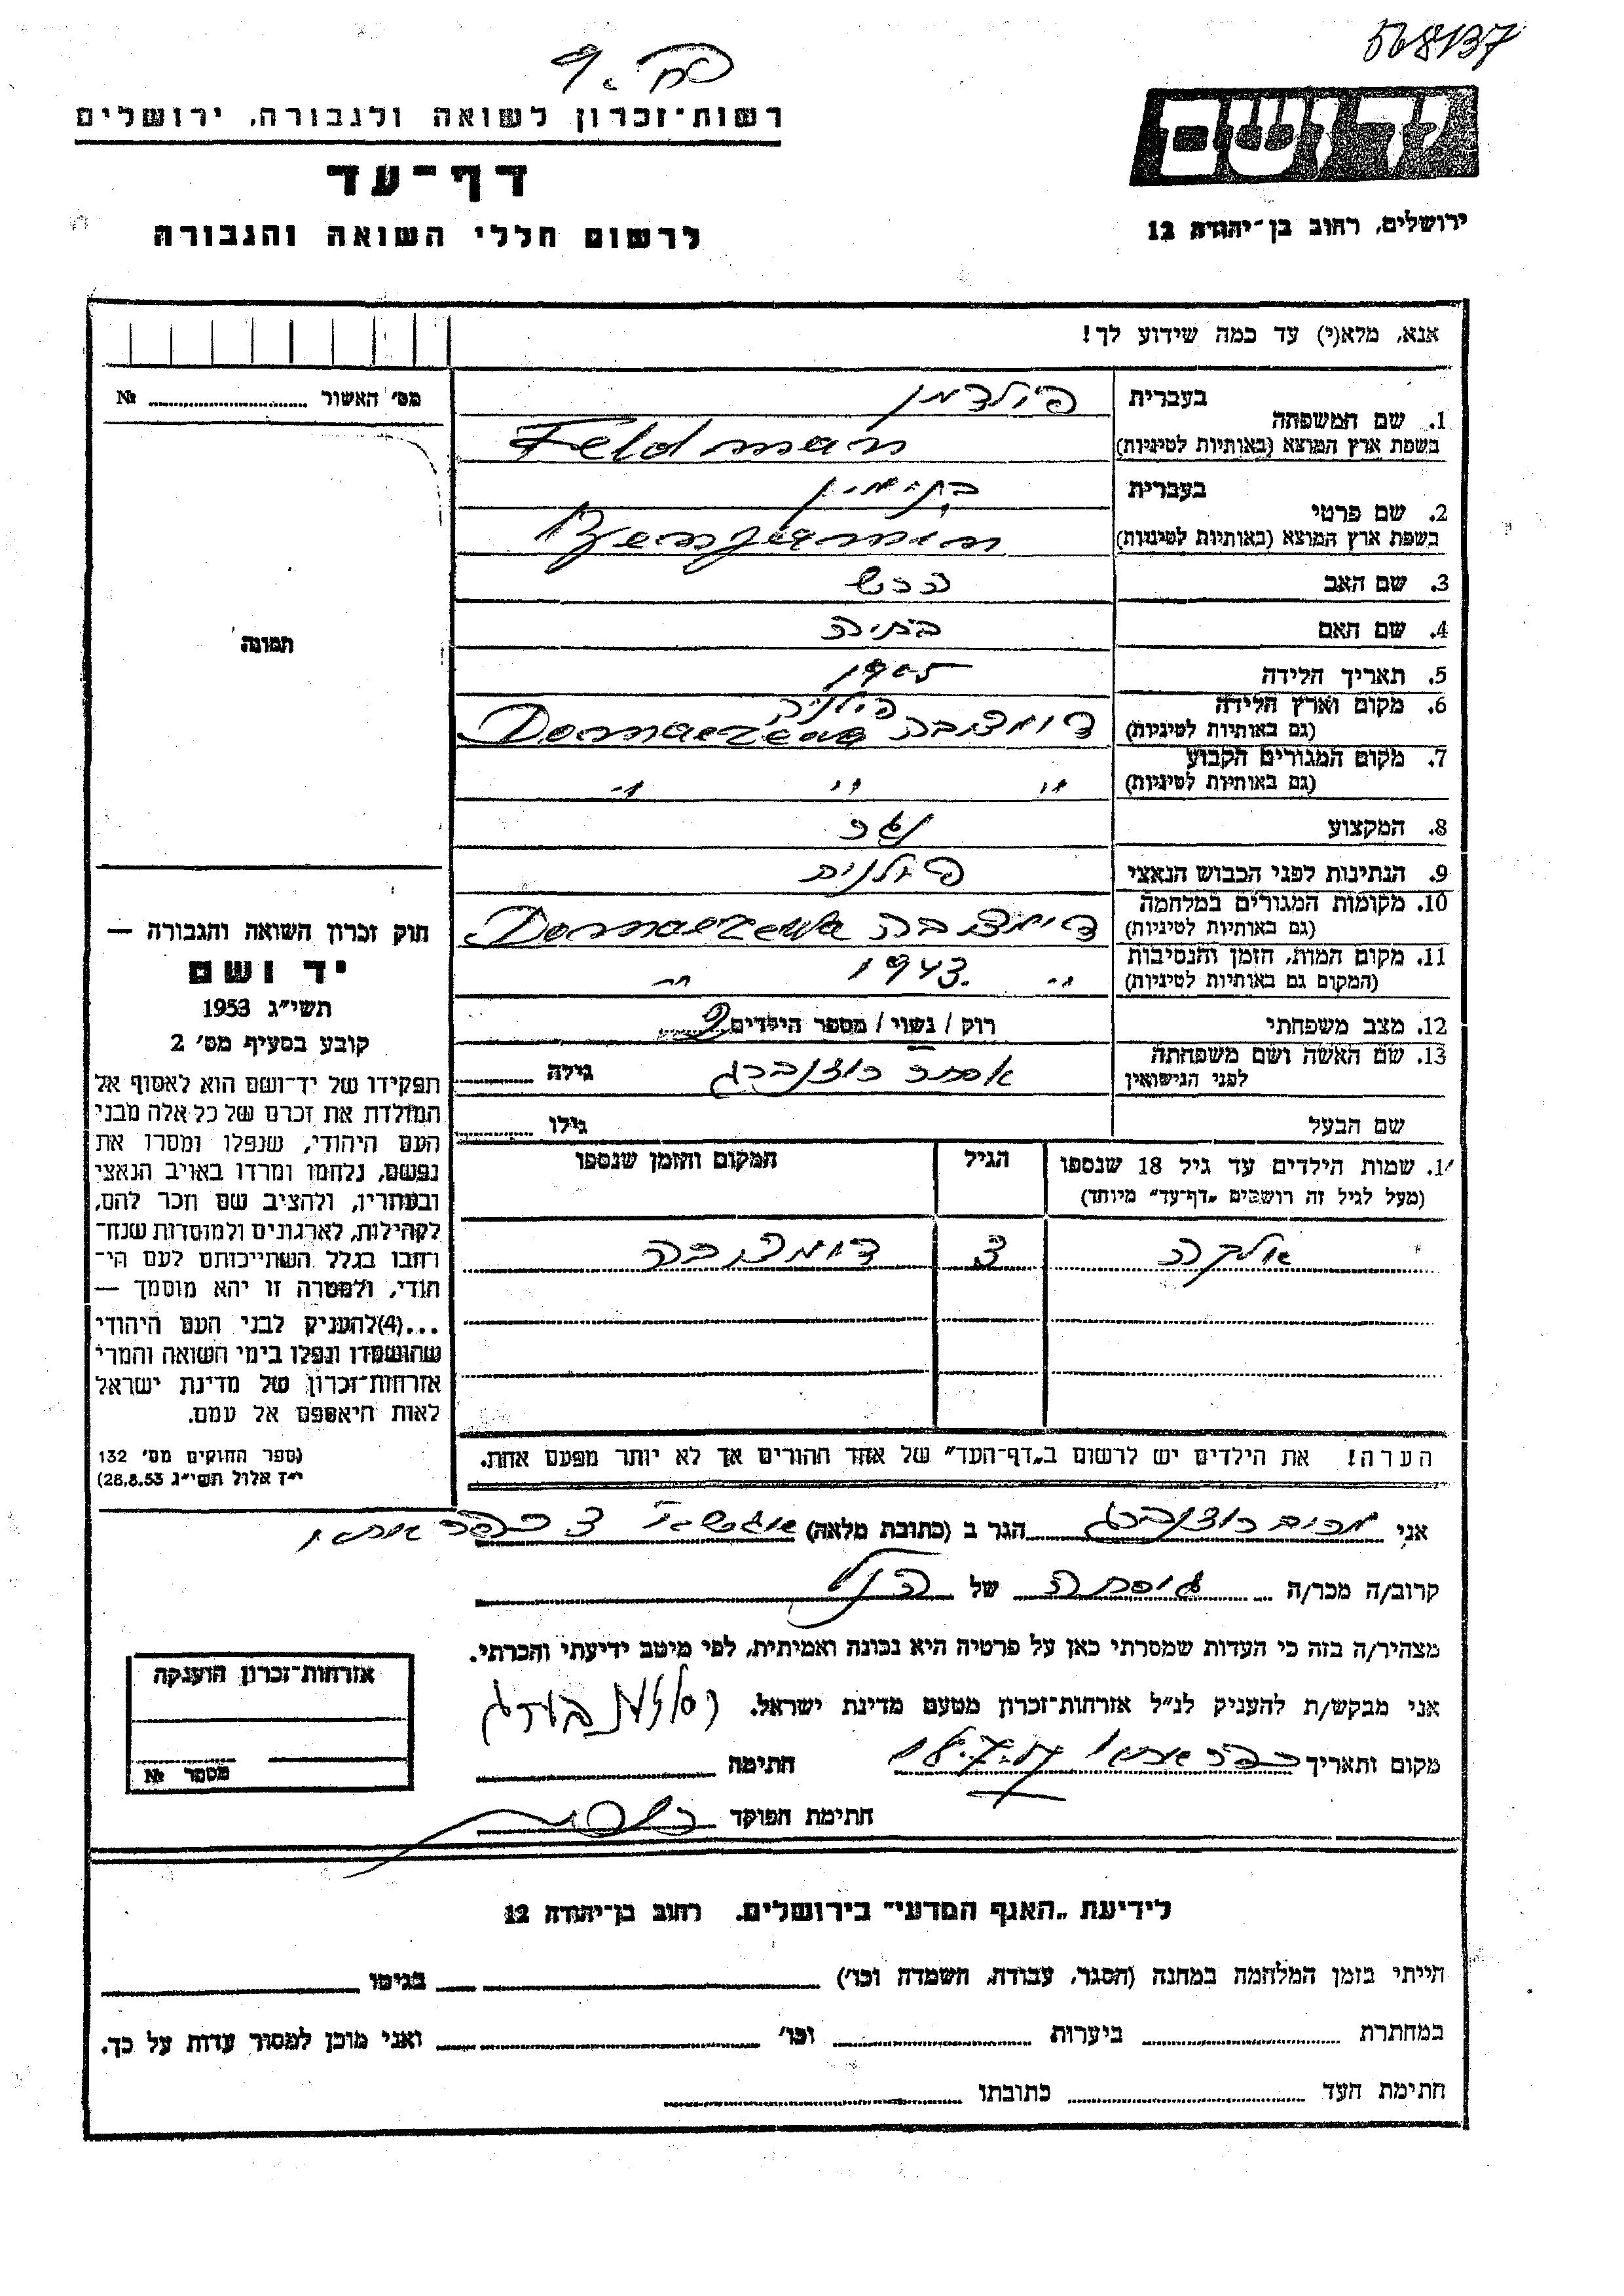 568137
רשות-זכרון לשואה ולגבורה, ירושלים
דף-עד
לרשום חללי השואה והגבורה
ידושם
ירושלים, רחוב בן-יהודה 12
אנא, מלא(י) עד כמה שידוע לך!
מס' האשור № ........
בעברית פולדמן
1. שם המשפחה
בשפת ארץ המוצא (באותיות לטיניות) Feldman
בעברית בנימין
2. שם פרטי
בשפת ארץ המוצא (באותיות לטיניות) Benjamin
3. שם האב
4. שם האם בתיה
5. תאריך הלידה 1905
6. מקום וארץ הלידה פולניה
(גם באותיות לטיניות) דומצ'בה
7. מקום המגורים הקבוע
(גם באותיות לטיניות) " " "
8. המקצוע נגר
9. הנתינות לפני הכבוש הנאצי פולנית
10. מקומות המגורים במלחמה
(גם באותיות לטיניות) דומצ'בה
11. מקום המות, הזמן והנסיבות
(המקום גם באותיות לטיניות) " 1943. "
12. מצב משפחתי רוק / נשוי / מספר הילדים
13. שם האשה ושם משפחתה
לפני הנישואין אסתר רוזנברג גילה ........
שם הבעל גילו ........
תמונה
1. שמות הילדים עד גיל 18 שנספו הגיל המקום והזמן שנספו
(מעל לגיל זה רושבים „דף-עד" מיוחד)
דומצ'בה
הערה! את הילדים יש לרשום ב„דף-העד" של אחד ההורים אך לא יותר מפעם אחת.
חוק זכרון השואה והגבורה —
יד ושם
תשי"ג 1953
קובע בסעיף מס' 2
תפקידו של יד-ושם הוא לאסוף אל
המולדת את זכרם של כל אלה מבני
העם היהודי, שנפלו ומסרו את
נפשם, נלחמו ומרדו באויב הנאצי
ובעוזריו, ולהציב שם וזכר להם,
לקהילות, לארגונים ולמוסדות שנח-
רבו בגלל השתייכותם לעם הי-
הודי, ולמטרה זו יהא מוסמך —
...(4)להעניק לבני העם היהודי
שהושמדו ונפלו בימי השואה והמרי
אזרחות-זכרון של מדינת ישראל
לאות היאספם אל עמם.
(ספר החוקים מס' 132
י"ז אלול תשי"ג 28.8.53)
אני רוזנברג הגר ב (כתובת מלאה)
קרוב/ה מכר/ה של הנ"ל
מצהיר/ה בזה כי העדות שמסרתי כאן על פרטיה היא נכונה ואמיתית, לפי מיטב ידיעתי והכרתי.
אני מבקש/ת להעניק לנ"ל אזרחות-זכרון מטעם מדינת ישראל.
מקום ותאריך חתימה
חתימת הפוקד
אזרחות-זכרון הוענקה
מספר №
לידיעת „האגף המדעי" בירושלים, רחוב בן-יהודה 12
הייתי בזמן המלחמה במחנה (הסגר, עבודה, השמדה וכו') בגיטו
במחתרת ביערות וכו' ואני מוכן למסור עדות על כך.
חתימת העד כתובתו